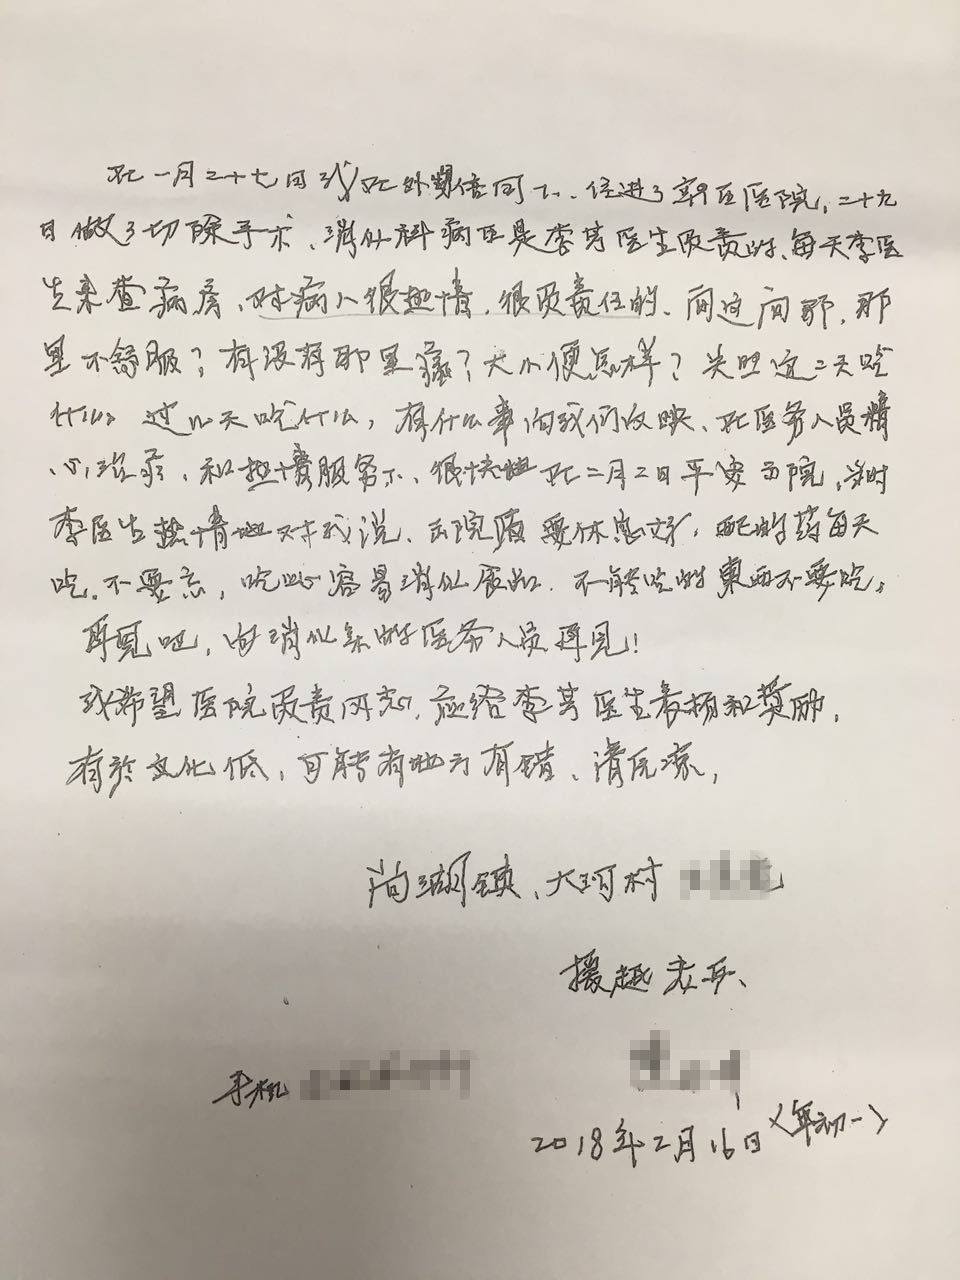 在一月二十七日我在外甥陪同下、住进了新区医院,二十九
日做了切除手术、消化科病区是李芳医生负责的、每天李医
生来查病房、对病人很热情,很负责任的、问这问那,那
里不舒服?有没有那里痛?大小便怎样?关照这二天吃
什么 过几天吃什么,有什么事向我们反映、在医务人员精
心治疗,和热情服务下、很快地在二月二日平安出院,当时
李医生热情地对我说、出院后要休息好,配的药每天
吃,不要忘,吃些容易消化食品.不能吃的东西不要吃,
再见吧,向消化系的医务人员再见!
我希望医院负责同志,应给李芳医生表扬和奖励,
有于文化低,可能有地方有错、请原谅,
尚湖镇、大河村
援越老兵、
手机
2018年2月16日〈年初一〉